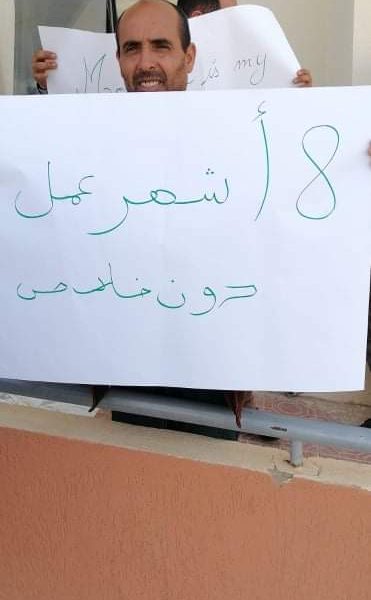 is my
8 أشهر عمل
دون خلاص